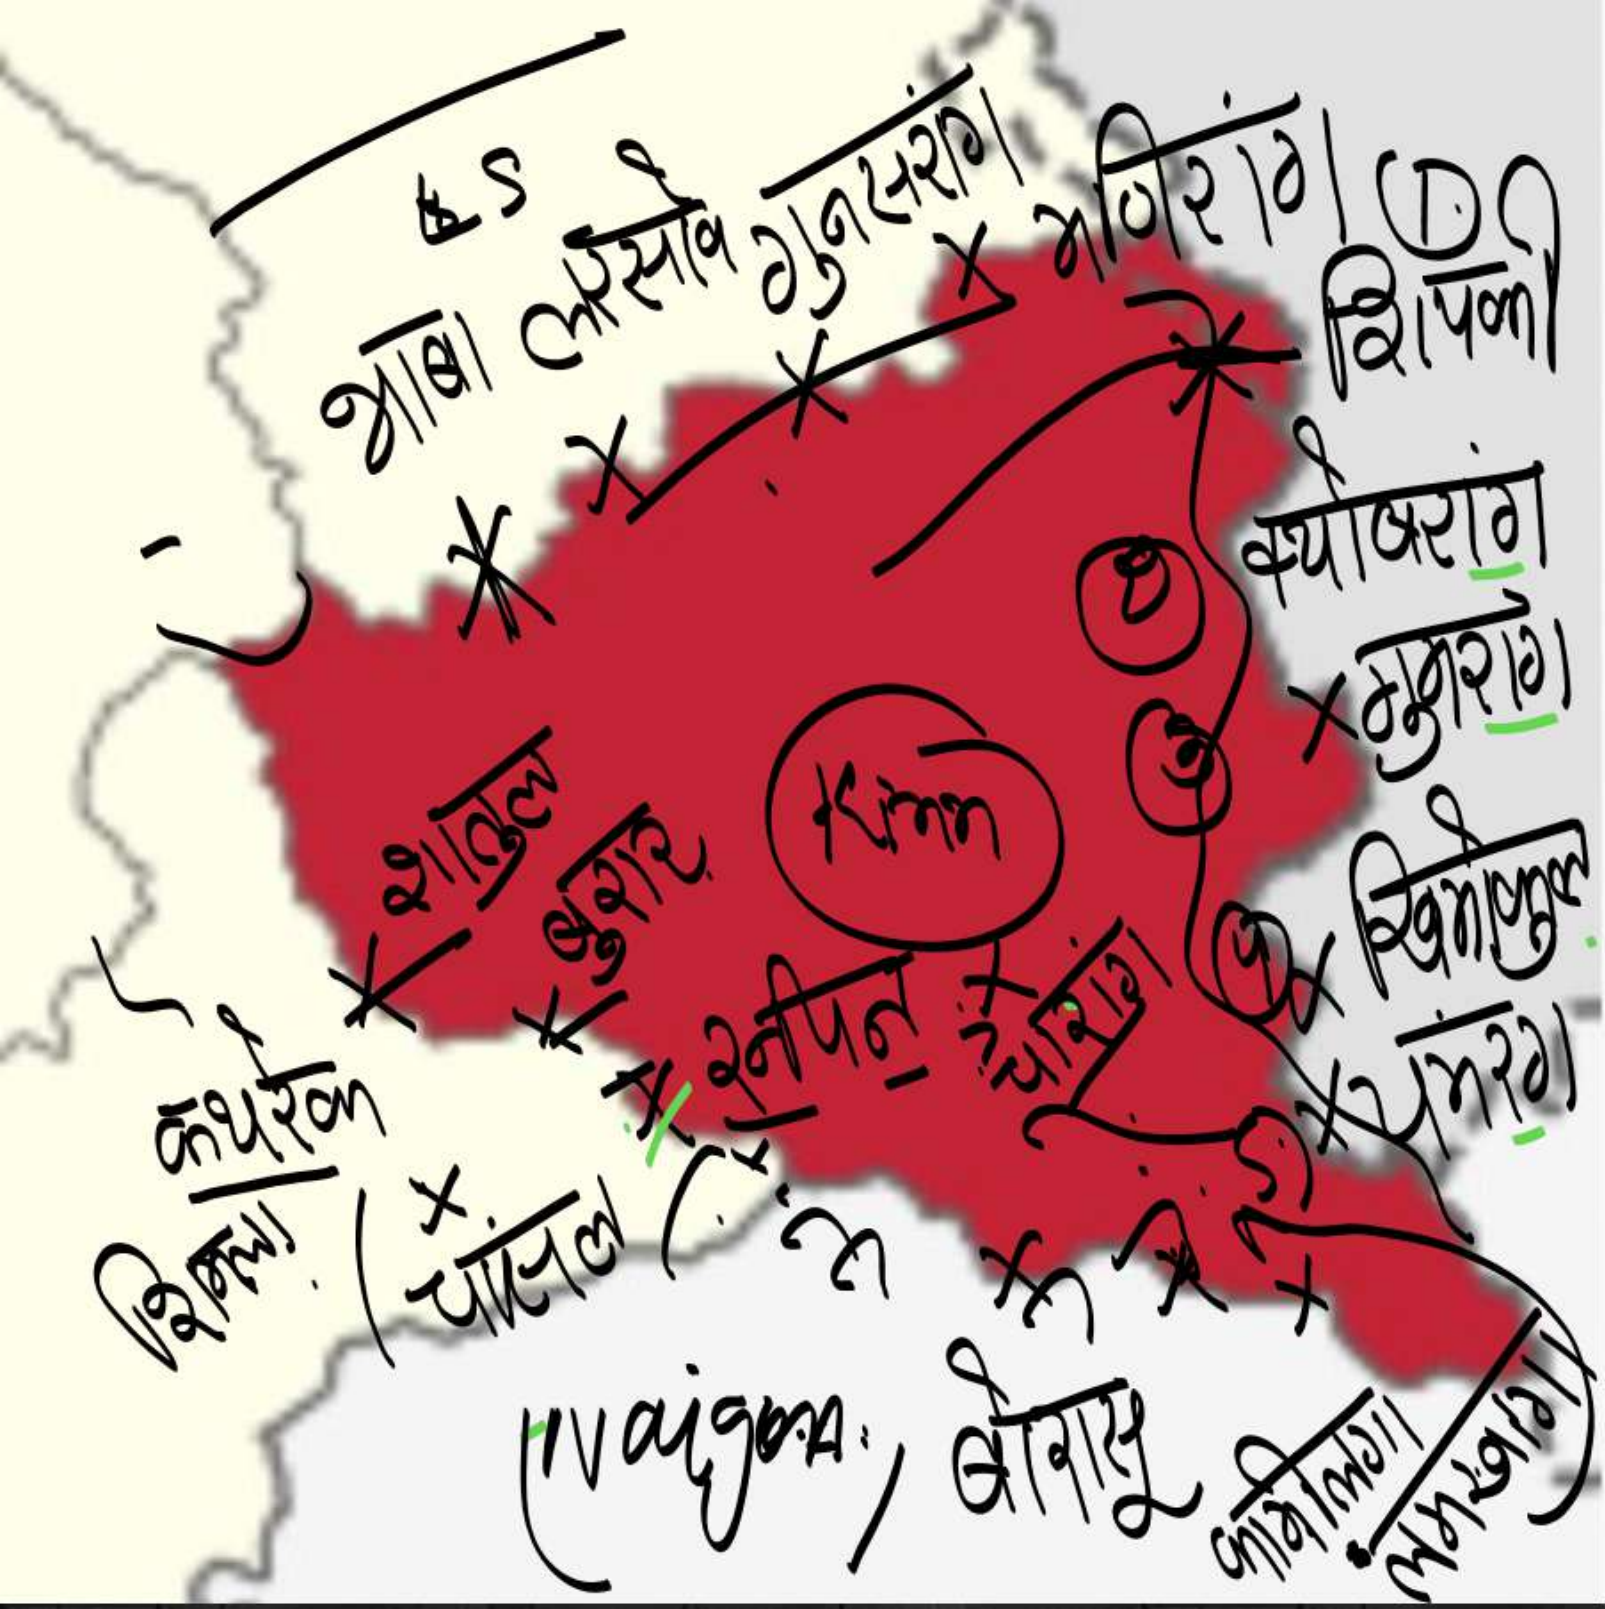 LS
भाबा
लारसोव
गुनसरांग
मणिरांग
शिपकी
क्योबरांग
गुमरांग
खिमोकुल
यमरंग
Kinn
शातुल
बुरार
रूनपिन
कथरेक
शिमला
चांसल
Naigan
बोरासू
लमखागा